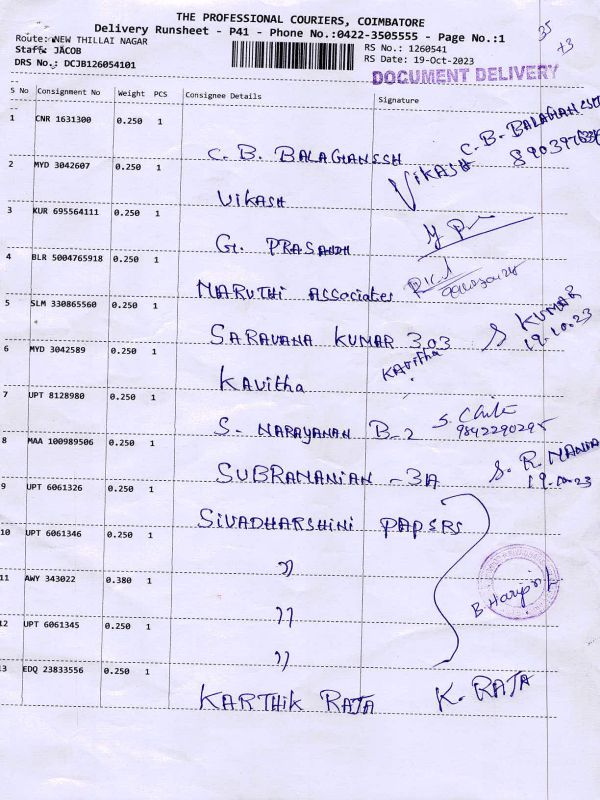 THE PROFESSIONAL COURIERS, COIMBATORE
Delivery Runsheet - P41 - Phone No.:0422-3505555 - Page No.:1
Route: NEW THILLAI NAGAR
RS No.: 1260541
35
Staff: JACOB
RS Date: 19-Oct-2023
+3
DRS No.: DCJB126054101
DOCUMENT DELIVERY
S No Consignment No Weight PCS Consignee Details Signature
1 CNR 1631300 0.250 1 C. B. BALAGANSSH C. B. BALAGIAN
2 MYD 3042607 0.250 1 VIKASH VIKASH
3 KUR 695564111 0.250 1 G. PRASANDH
4 BLR 5004765918 0.250 1 MARUTHI ASSOCIATES
5 SLM 330865560 0.250 1 SARAVANA KUMAR 303 S KUMAR
19.10.23
6 MYD 3042589 0.250 1 Kavitha Kavitha
7 UPT 8128980 0.250 1 S. NARAYANAN B-2 S.
9842290295
8 MAA 100989506 0.250 1 SUBRAMANIAN - 3A S. R. NANDA
19.10.23
9 UPT 6061326 0.250 1 SIVADHARSHINI PAPSRS
10 UPT 6061346 0.250 1 ))
11 AWY 343022 0.380 1 ))
B
12 UPT 6061345 0.250 1 ))
13 EDQ 23833556 0.250 1 KARTHIK RAJA K. RAJA